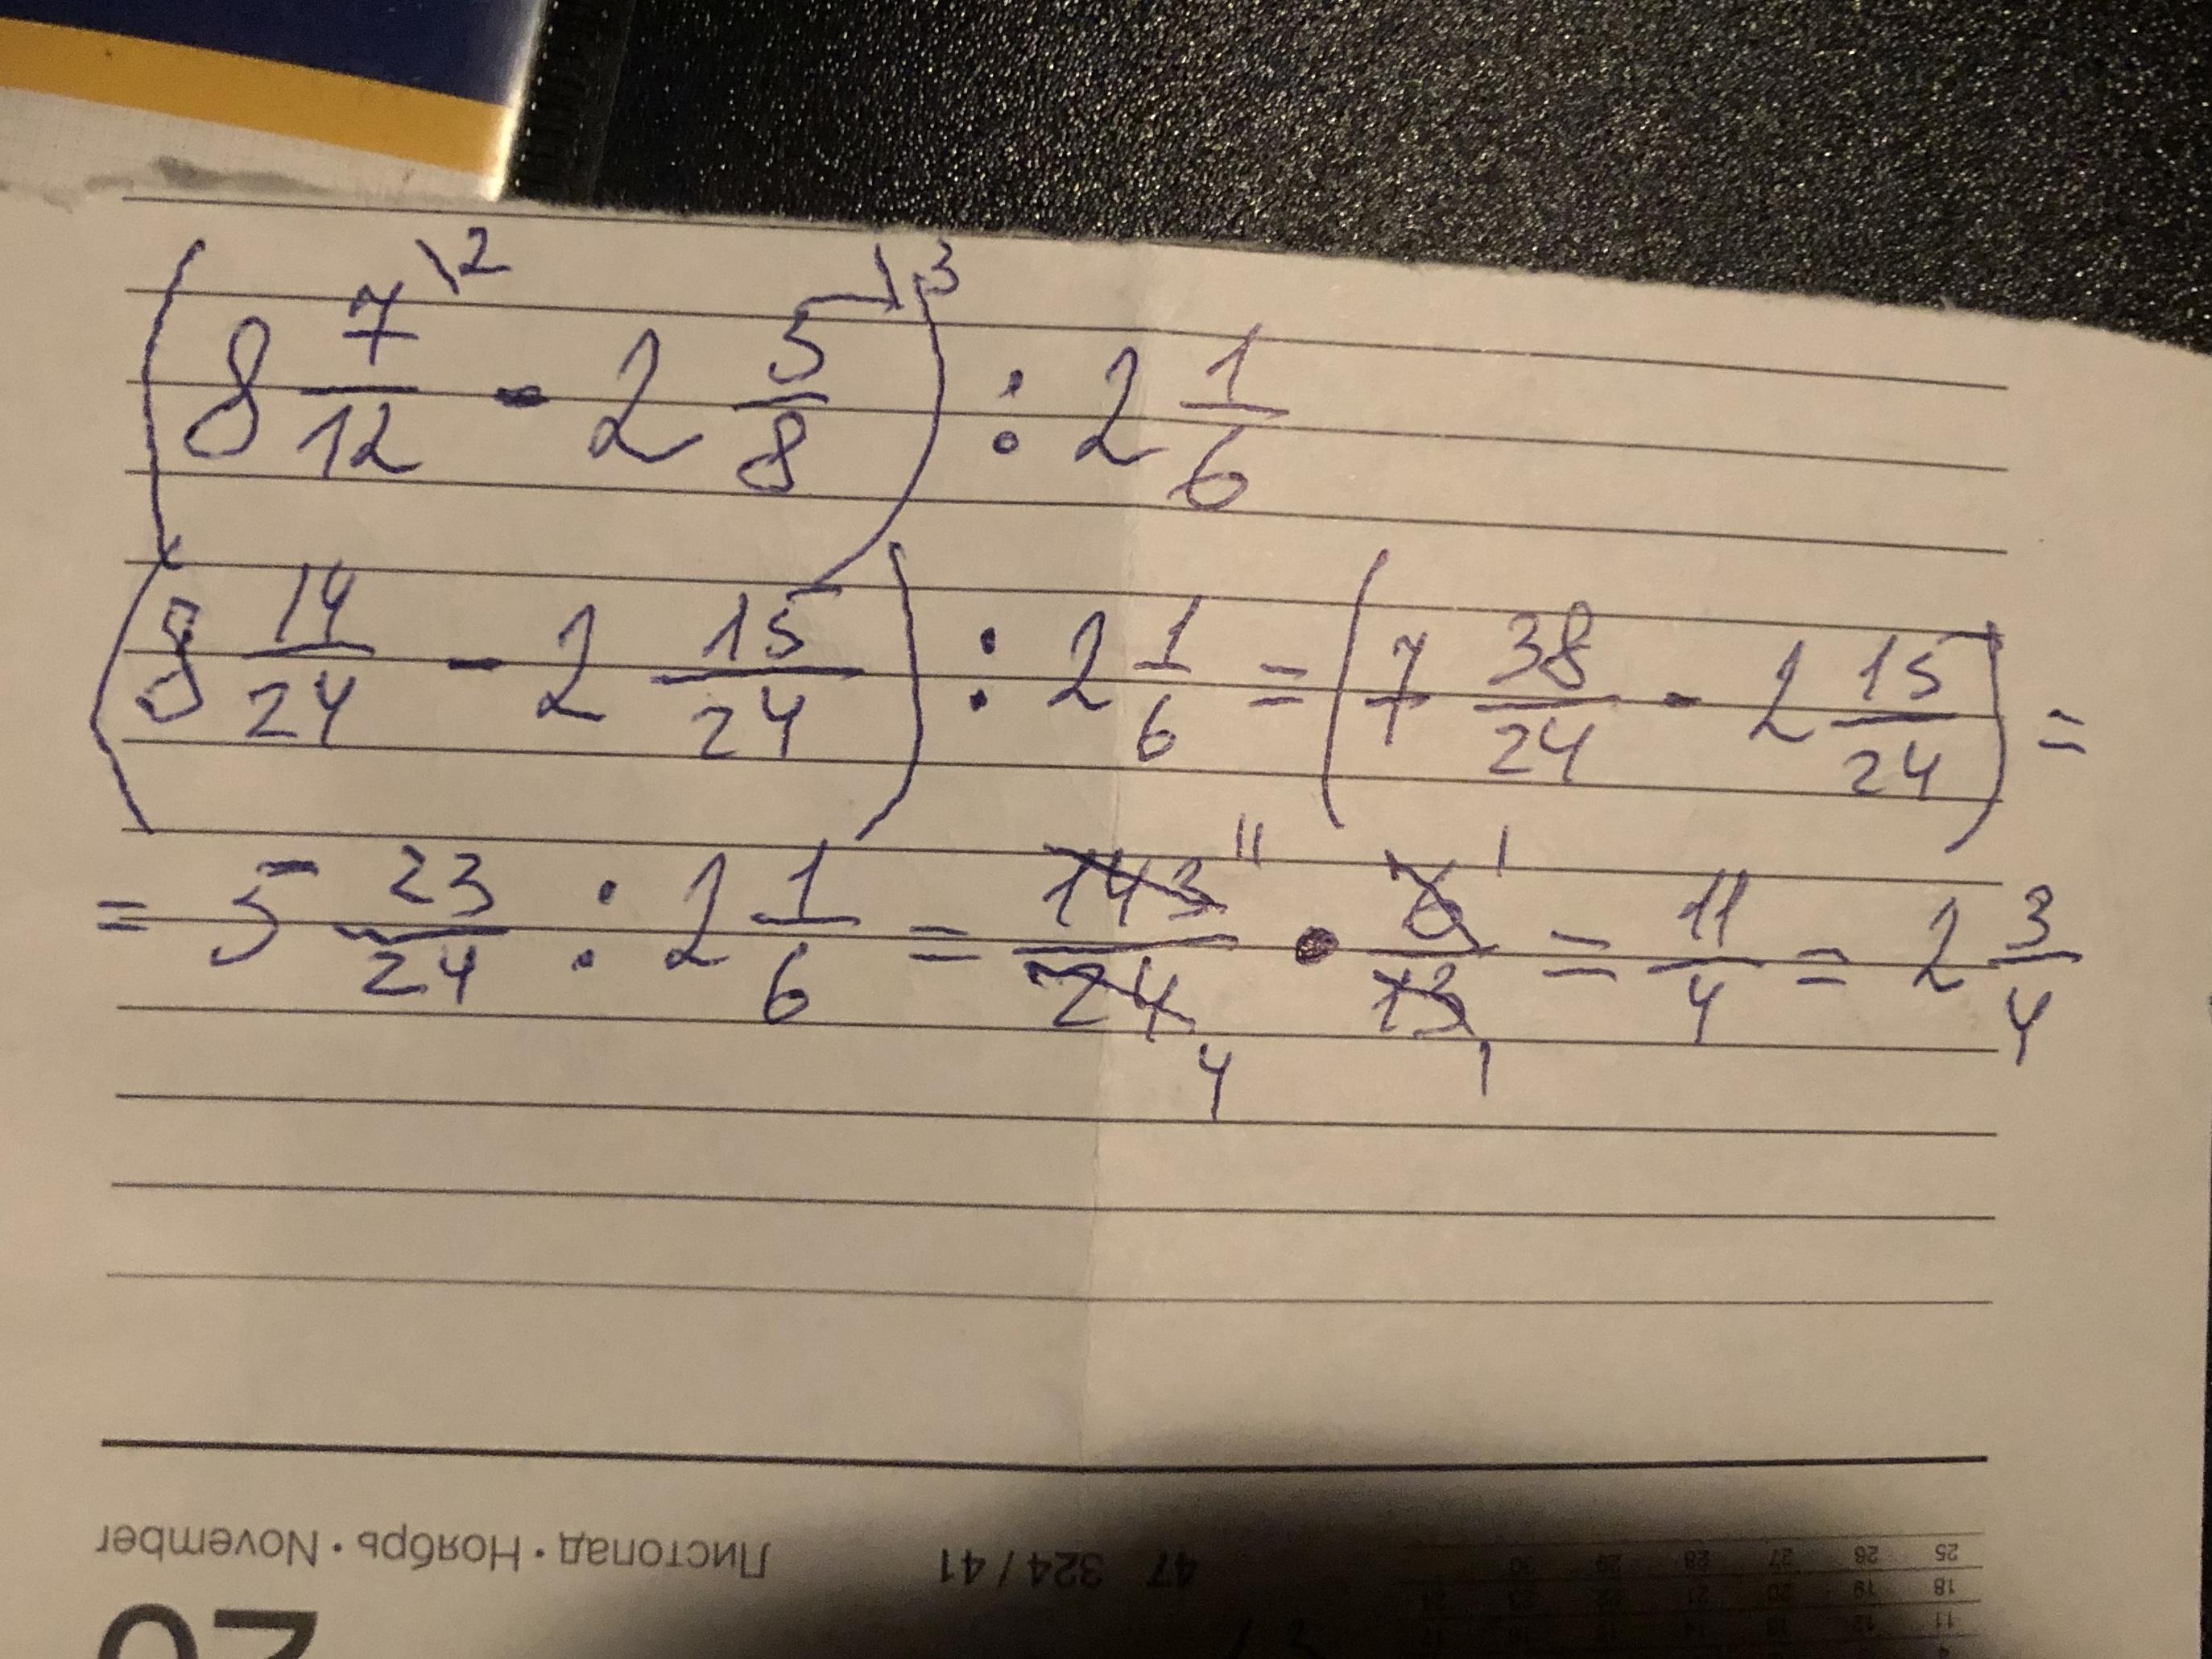 (8 7/12 \2 - 2 5/8 \3) : 2 1/6
(8 14/24 - 2 15/24) : 2 1/6 = (7 38/24 - 2 15/24) =
= 5 23/24 : 2 1/6 = 143/24 · 6/13 = 11/4 = 2 3/4
11 1
4 1
Листопад · Ноябрь · November
47 324 / 41
20
25 26 27 28 29 30
18 19 20 21 22 23 24
11 12 13 14 15 16 17
4